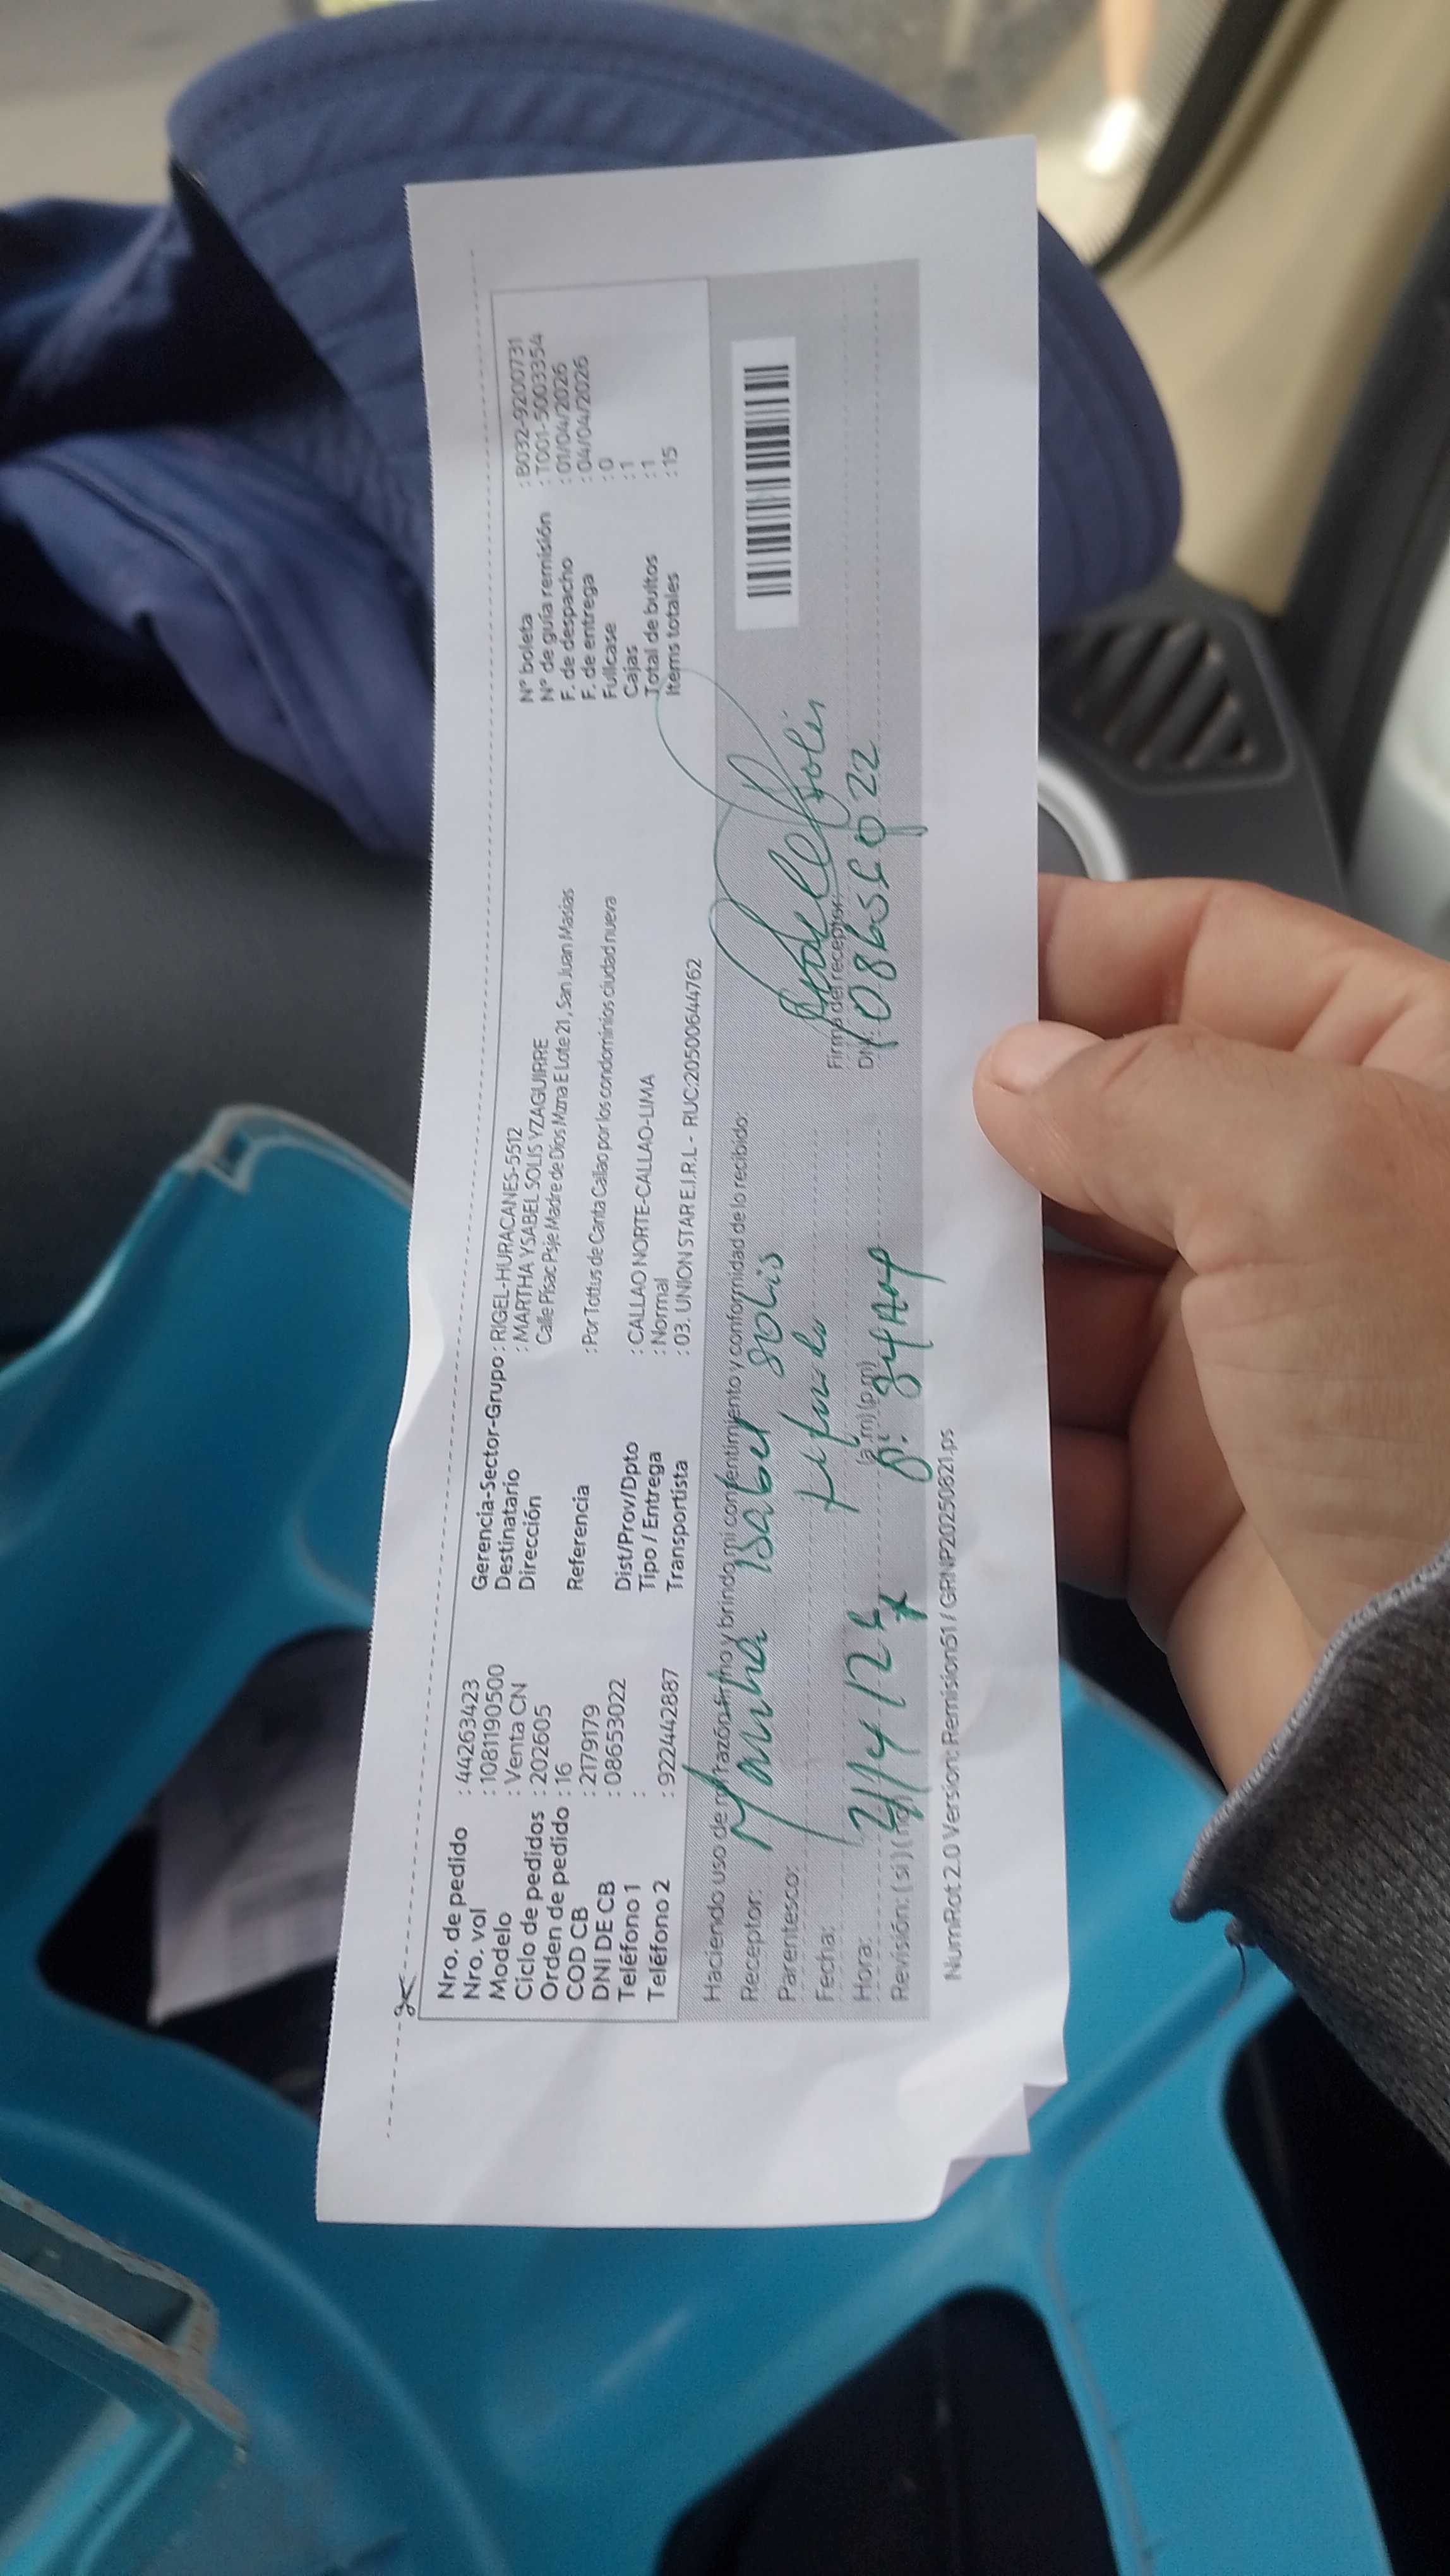 Nro. de pedido : 44263423
Nro. vol : 1081190500
Modelo : Venta CN
Ciclo de pedidos : 202605
Orden de pedido : 16
COD CB : 2179179
DNI DE CB : 08653022
Teléfono 1 :
Teléfono 2 : 922442887
Gerencia-Sector-Grupo : RIGEL-HURACANES-5512
Destinatario : MARTHA YSABEL SOLIS YZAGUIRRE
Dirección Calle Pisac Psje Madre de Dios Mzna E Lote 21, San Juan Masias
Referencia : Por Tottus de Canta Callao por los condominios ciudad nueva
Dist/Prov/Dpto : CALLAO NORTE-CALLAO-LIMA
Tipo / Entrega : Normal
Transportista : 03. UNION STAR E.I.R.L - RUC:20500644762
N° boleta : B032-9200731
N° de guía remisión : T001-5003354
F. de despacho : 01/04/2026
F. de entrega : 04/04/2026
Fullcase : 0
Cajas : 1
Total de bultos : 1
Items totales : 15
Haciendo uso de mi razón firmo y brindo mi consentimiento y conformidad de lo recibido:
Receptor: Martha Isabel Solis
Parentesco:
Fecha:
Hora: (a.m) (p.m)
Revisión: ( si ) ( no )
Firma del receptor:
DNI:
NumRot 2.0 Version: Remision51 / GRNP20250821.ps